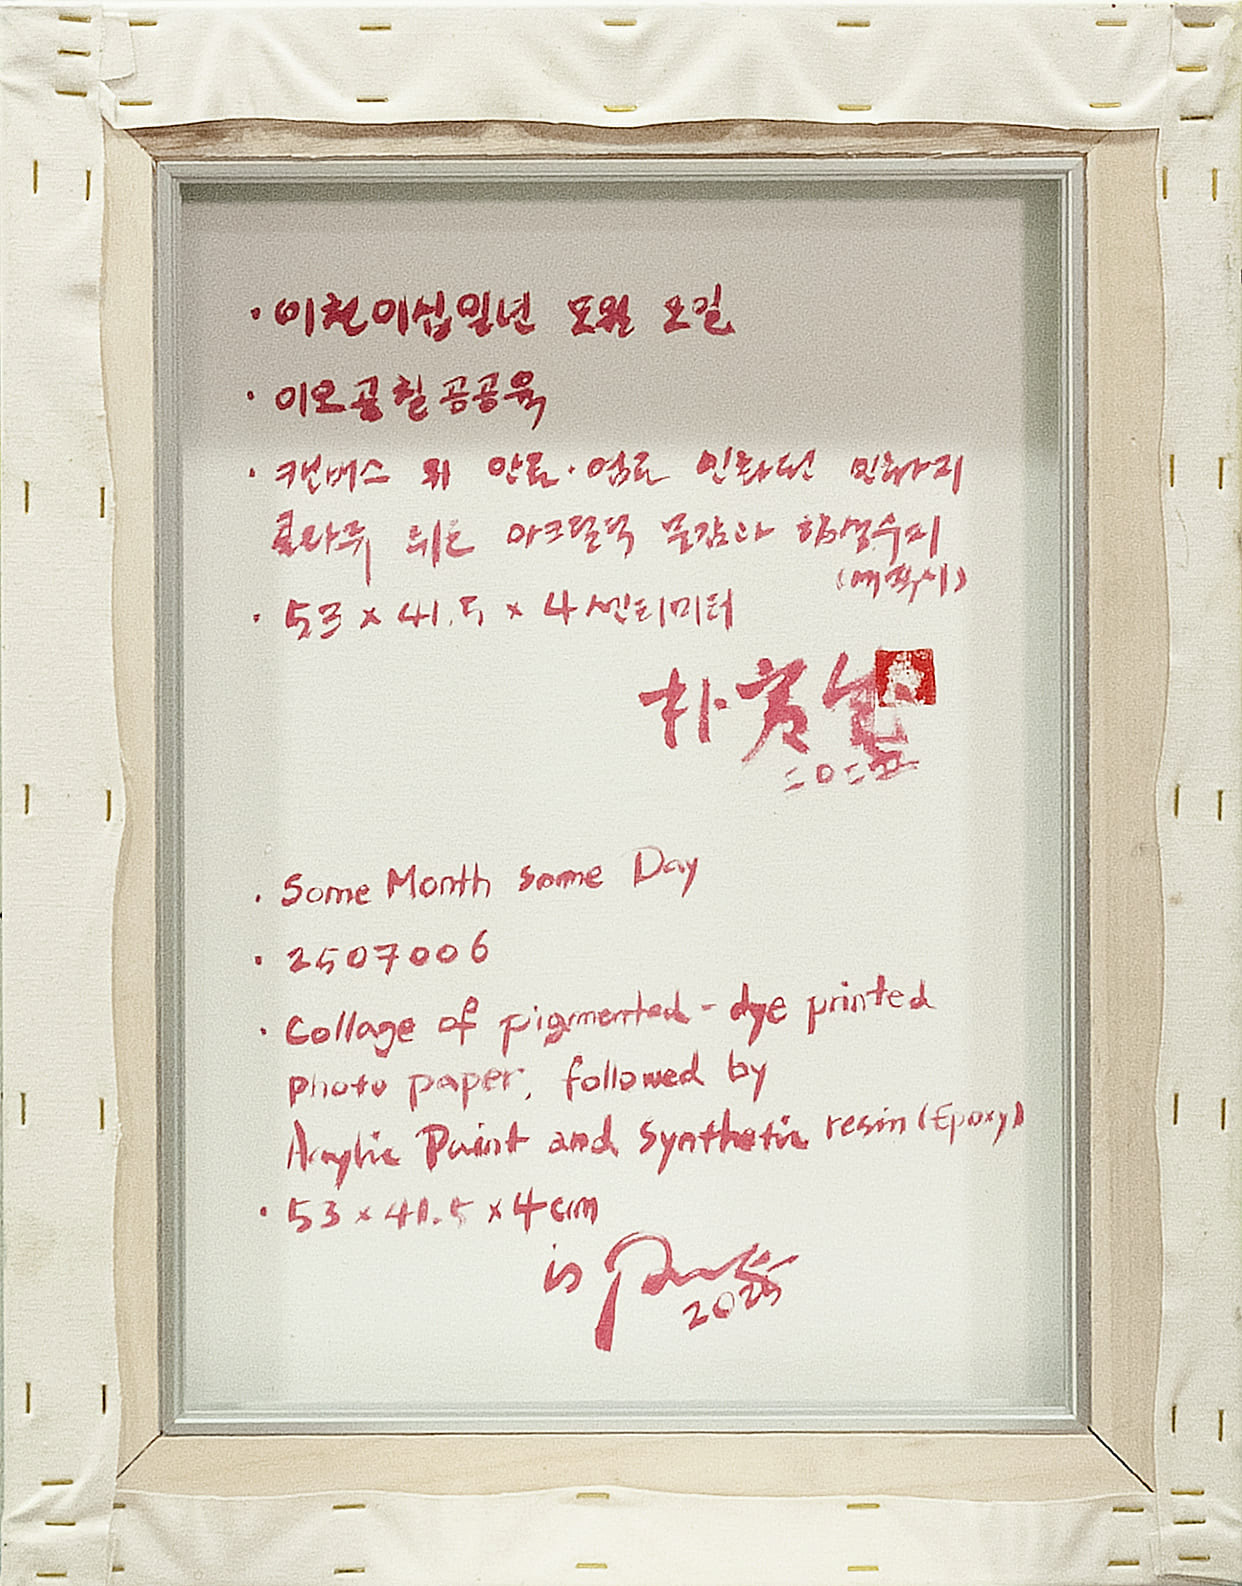 · 이천이십일년 모월 모일
· 이오공칠공공육
· 캔버스 위 안료·염료 인화된 인화지
콜라쥬 아크릴릭 물감과 합성수지
(에폭시)
· 53 x 41.5 x 4 센티미터
朴
二〇二五
· Some Month Some Day
· 2507006
· Collage of pigmented-dye printed
photo paper, followed by
Acrylic Paint and Synthetic resin (Epoxy)
· 53 x 41.5 x 4 cm
2025